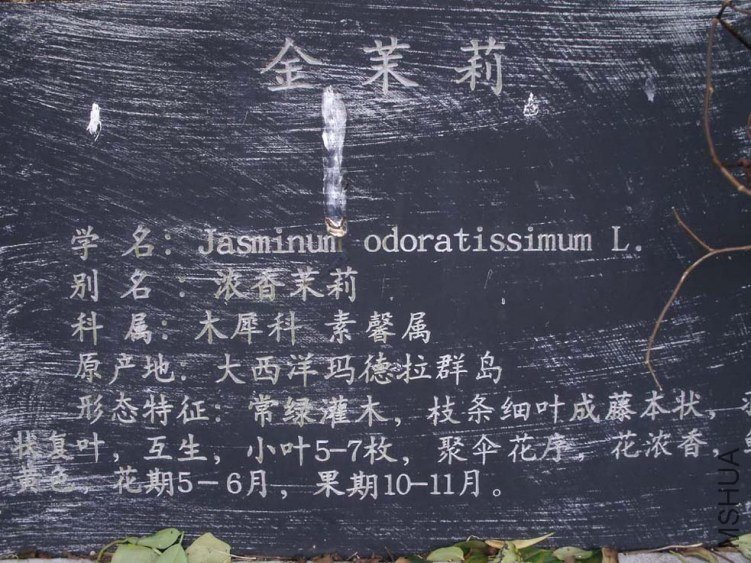 金茉莉
学 名: Jasminum odoratissimum L.
别 名 : 浓香茉莉
科 属: 木犀科 素馨属
原产地: 大西洋玛德拉群岛
形态特征: 常绿灌木, 枝条细叶成藤本状,
状复叶, 互生, 小叶5-7枚, 聚伞花序, 花浓香,
黄色, 花期5-6月, 果期10-11月。
MSHUA